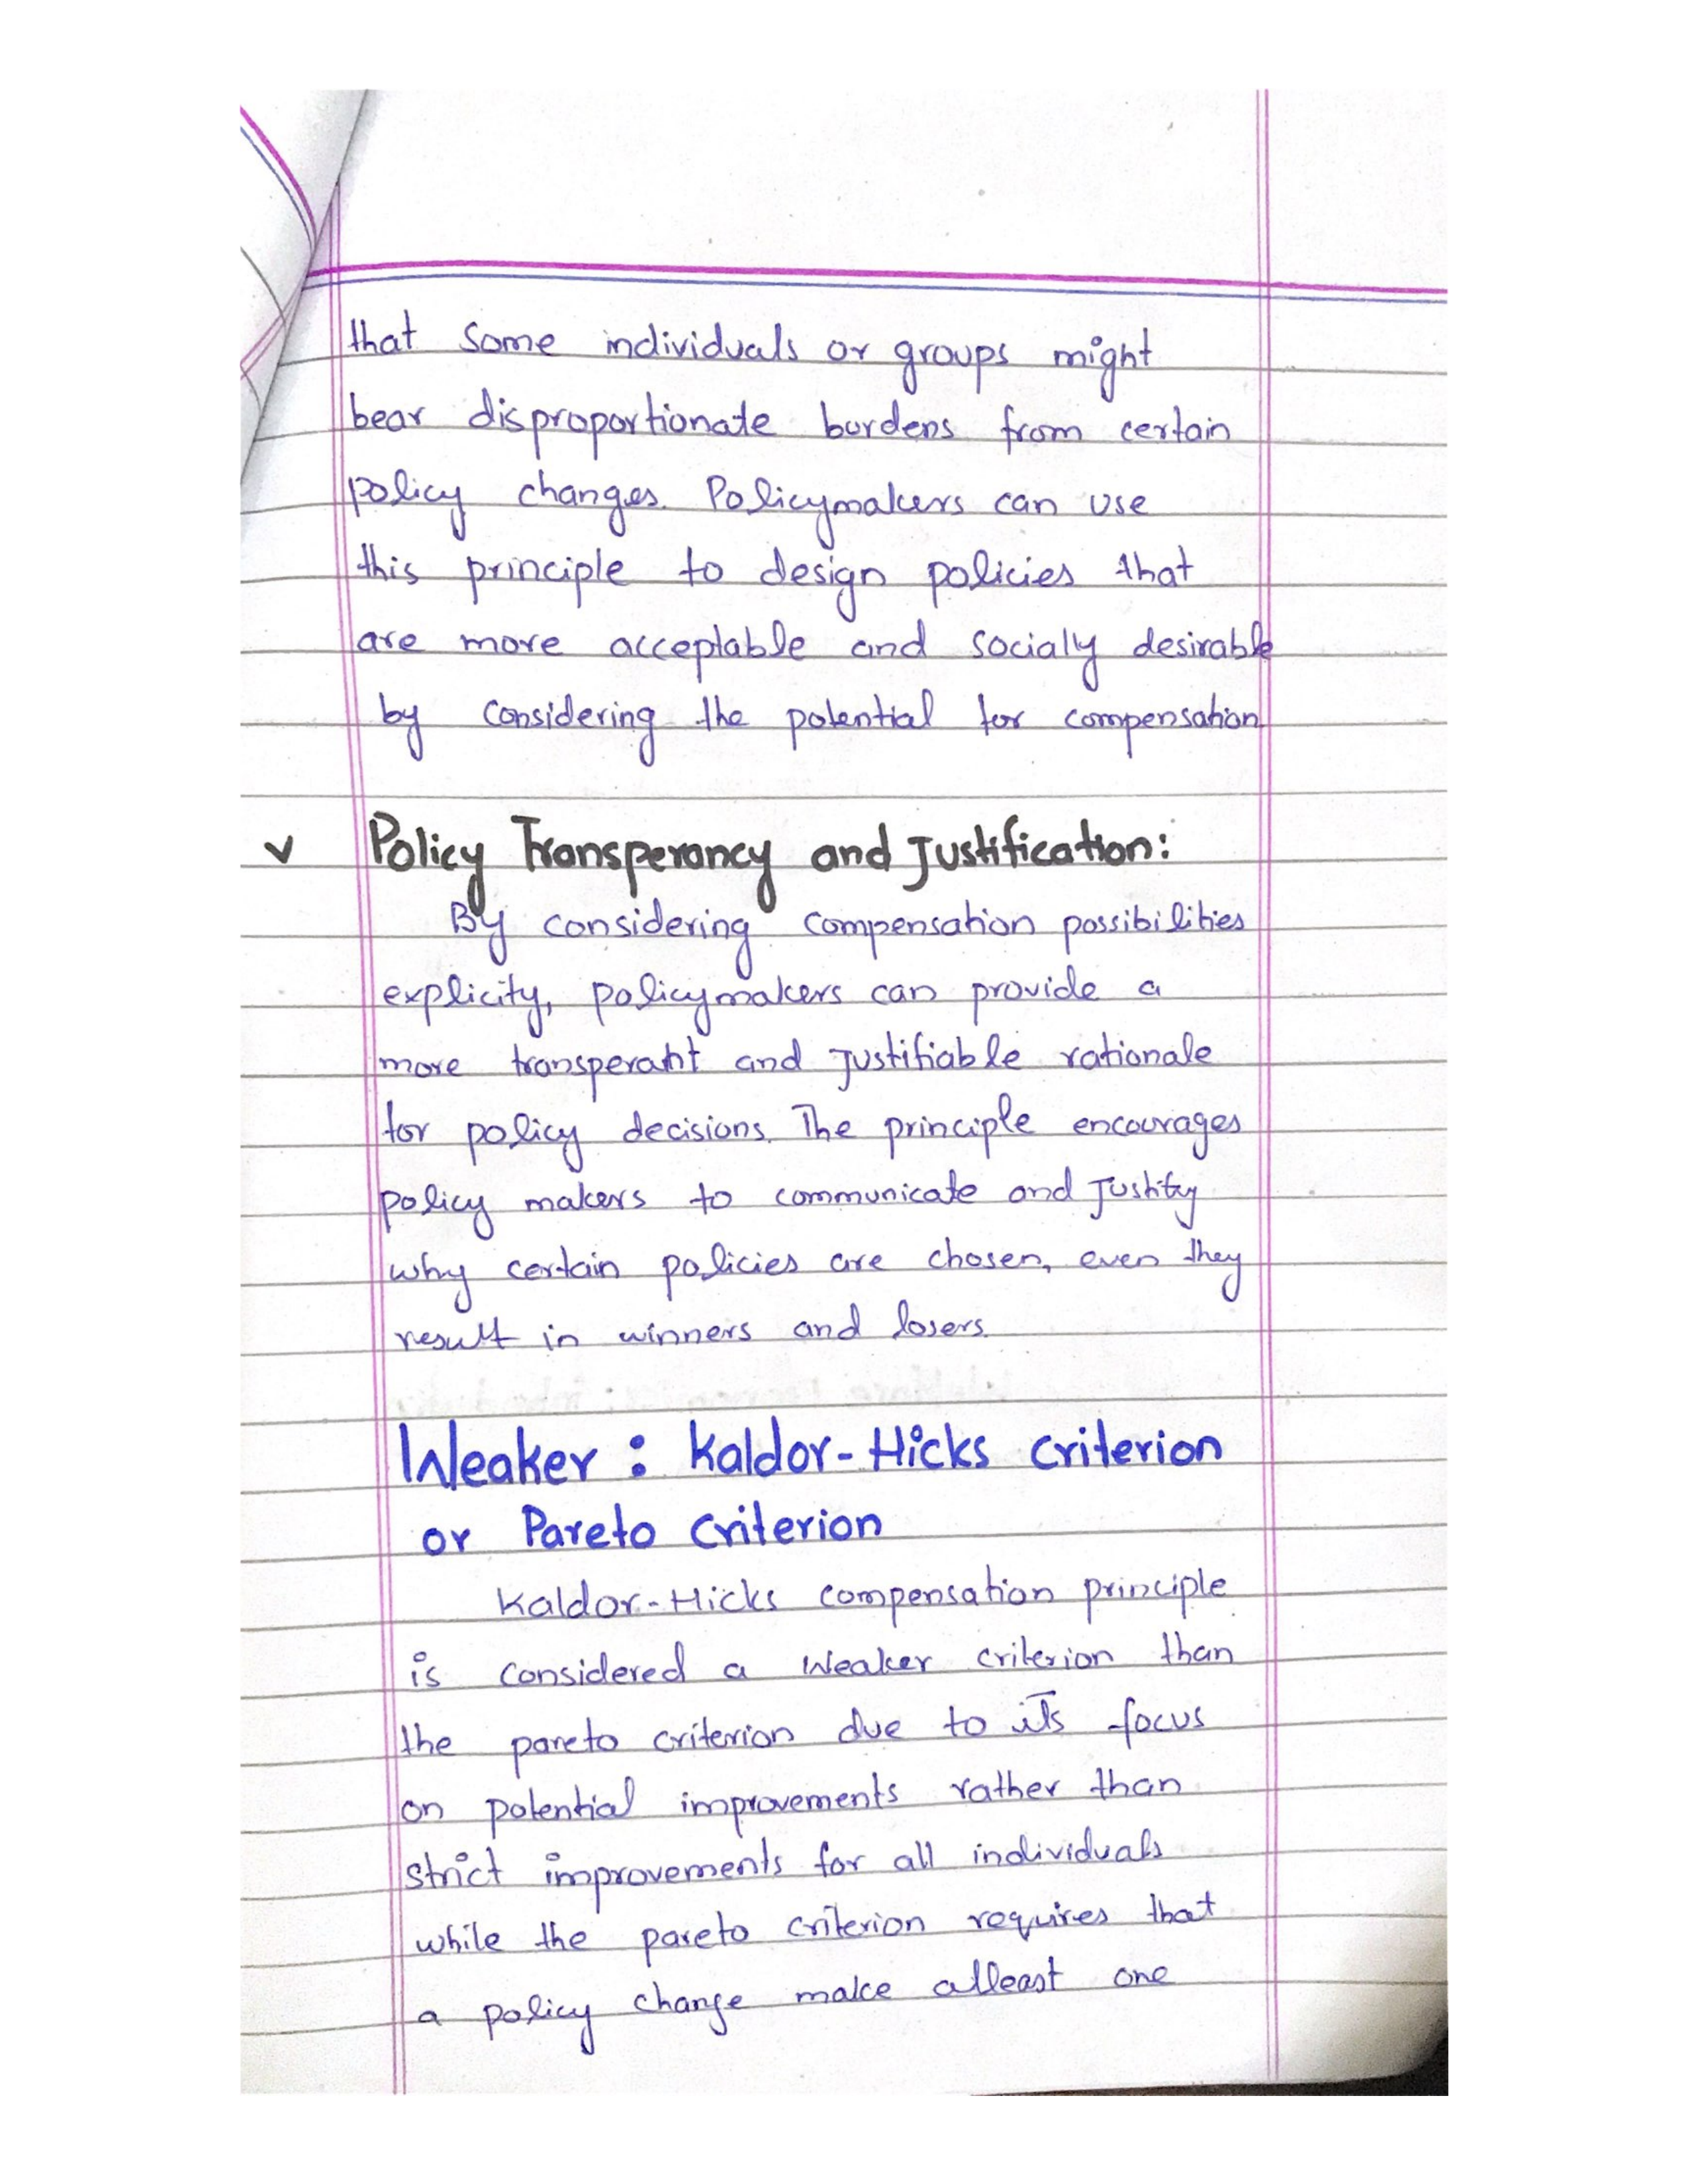 that some individuals or groups might
bear disproportionate burdens from certain
policy changes. Policymakers can use
this principle to design policies that
are more acceptable and socialy desirable
by considering the potential for compensation.
✓ Policy Transperancy and Justification:
By considering compensation possibilities
explicity, policymakers can provide a
more transperant and justifiable rationale
for policy decisions. The principle encourages
policy makers to communicate and Justify
why certain policies are chosen, even they
result in winners and losers.
Weaker : Kaldor-Hicks criterion
or Pareto Criterion
Kaldor-Hicks compensation principle
is considered a weaker criterion than
the pareto criterion due to its focus
on potential improvements rather than
strict improvements for all individuals
while the pareto criterion requires that
a policy change make atleast one